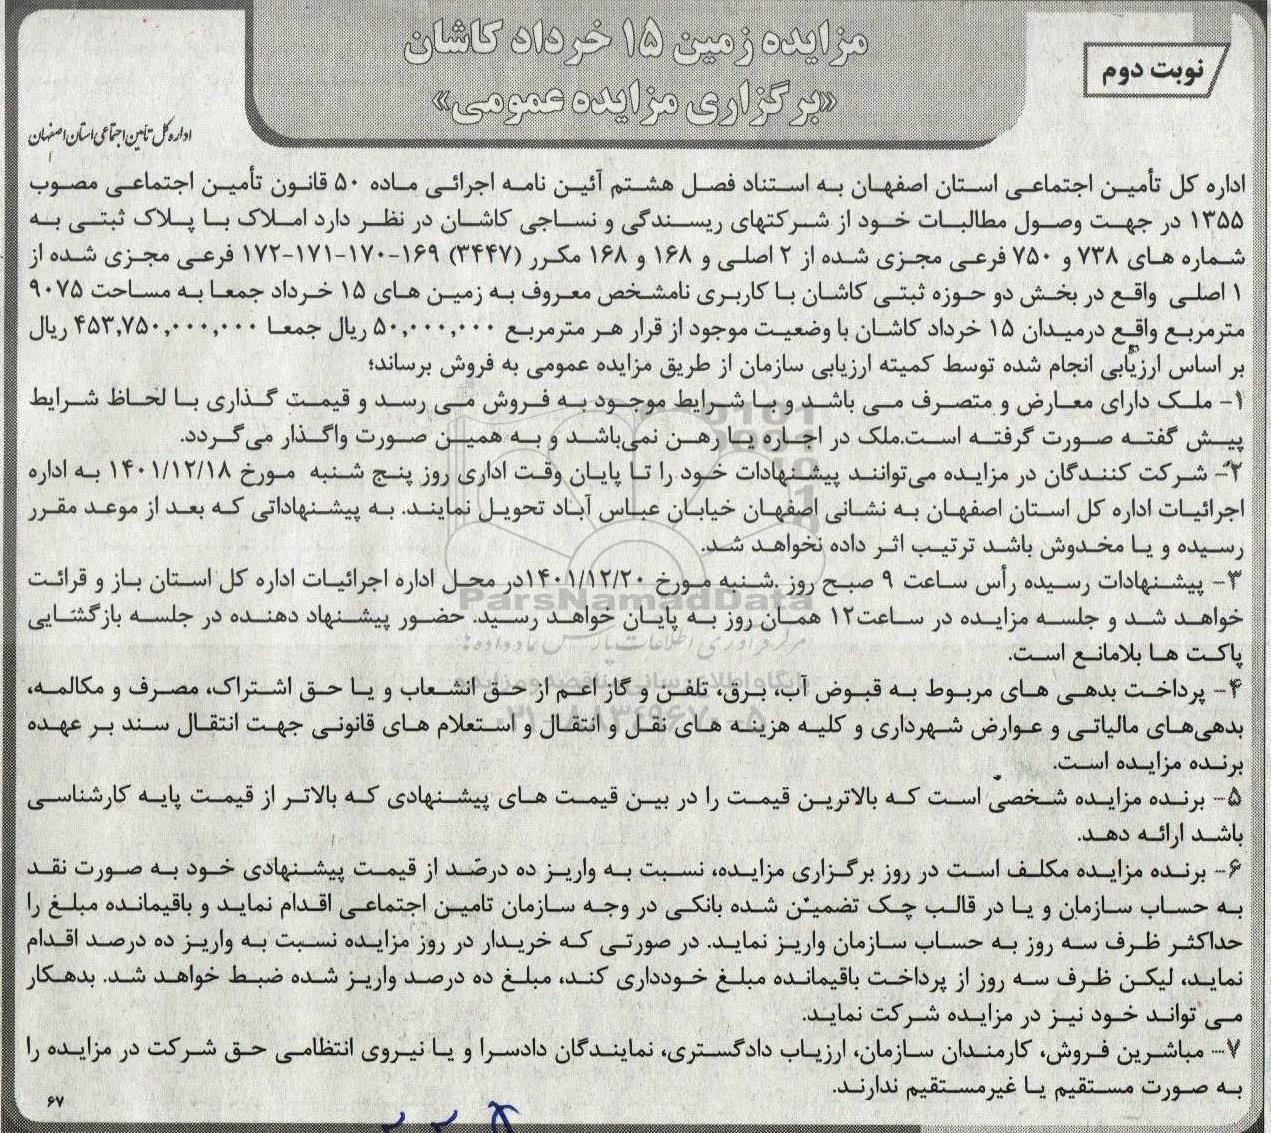 مزایده زمین ۱۵ خرداد کاشان
«برگزاری مزایده عمومی»
نوبت دوم
اداره کل تأمین اجتماعی استان اصفهان
اداره کل تأمین اجتماعی استان اصفهان به استناد فصل هشتم آئین نامه اجرائی ماده ۵۰ قانون تأمین اجتماعی مصوب
۱۳۵۵ در جهت وصول مطالبات خود از شرکتهای ریسندگی و نساجی کاشان در نظر دارد املاک با پلاک ثبتی به
شماره های ۷۳۸ و ۷۵۰ فرعی مجزی شده از ۲ اصلی و ۱۶۸ و ۱۶۸ مکرر (۳۴۴۷) ۱۶۹-۱۷۰-۱۷۱-۱۷۲ فرعی مجزی شده از
۱ اصلی واقع در بخش دو حوزه ثبتی کاشان با کاربری نامشخص معروف به زمین های ۱۵ خرداد جمعا به مساحت ۹۰۷۵
مترمربع واقع درمیدان ۱۵ خرداد کاشان با وضعیت موجود از قرار هر مترمربع ۵۰,۰۰۰,۰۰۰ ریال جمعا ۴۵۳,۷۵۰,۰۰۰,۰۰۰ ریال
بر اساس ارزیابی انجام شده توسط کمیته ارزیابی سازمان از طریق مزایده عمومی به فروش برساند؛
۱- ملک دارای معارض و متصرف می باشد و با شرایط موجود به فروش می رسد و قیمت گذاری با لحاظ شرایط
پیش گفته صورت گرفته است.ملک در اجاره یا رهن نمی‌باشد و به همین صورت واگذار می‌گردد.
۲- شرکت کنندگان در مزایده می‌توانند پیشنهادات خود را تا پایان وقت اداری روز پنج شنبه مورخ ۱۴۰۱/۱۲/۱۸ به اداره
اجرائیات اداره کل استان اصفهان به نشانی اصفهان خیابان عباس آباد تحویل نمایند. به پیشنهاداتی که بعد از موعد مقرر
رسیده و یا مخدوش باشد ترتیب اثر داده نخواهد شد.
۳- پیشنهادات رسیده رأس ساعت ۹ صبح روز .شنبه مورخ ۱۴۰۱/۱۲/۲۰در محل اداره اجرائیات اداره کل استان باز و قرائت
خواهد شد و جلسه مزایده در ساعت۱۲ همان روز به پایان خواهد رسید. حضور پیشنهاد دهنده در جلسه بازگشایی
پاکت ها بلامانع است.
۴- پرداخت بدهی های مربوط به قبوض آب، برق، تلفن و گاز اعم از حق انشعاب و یا حق اشتراک، مصرف و مکالمه،
بدهی‌های مالیاتی و عوارض شهرداری و کلیه هزینه های نقل و انتقال و استعلام های قانونی جهت انتقال سند بر عهده
برنده مزایده است.
۵- برنده مزایده شخصی است که بالاترین قیمت را در بین قیمت های پیشنهادی که بالاتر از قیمت پایه کارشناسی
باشد ارائه دهد.
۶- برنده مزایده مکلف است در روز برگزاری مزایده، نسبت به واریز ده درصد از قیمت پیشنهادی خود به صورت نقد
به حساب سازمان و یا در قالب چک تضمین شده بانکی در وجه سازمان تامین اجتماعی اقدام نماید و باقیمانده مبلغ را
حداکثر ظرف سه روز به حساب سازمان واریز نماید. در صورتی که خریدار در روز مزایده نسبت به واریز ده درصد اقدام
نماید، لیکن ظرف سه روز از پرداخت باقیمانده مبلغ خودداری کند، مبلغ ده درصد واریز شده ضبط خواهد شد. بدهکار
می تواند خود نیز در مزایده شرکت نماید.
۷- مباشرین فروش، کارمندان سازمان، ارزیاب دادگستری، نمایندگان دادسرا و یا نیروی انتظامی حق شرکت در مزایده را
به صورت مستقیم یا غیرمستقیم ندارند.
۶۷
ParsNamadData